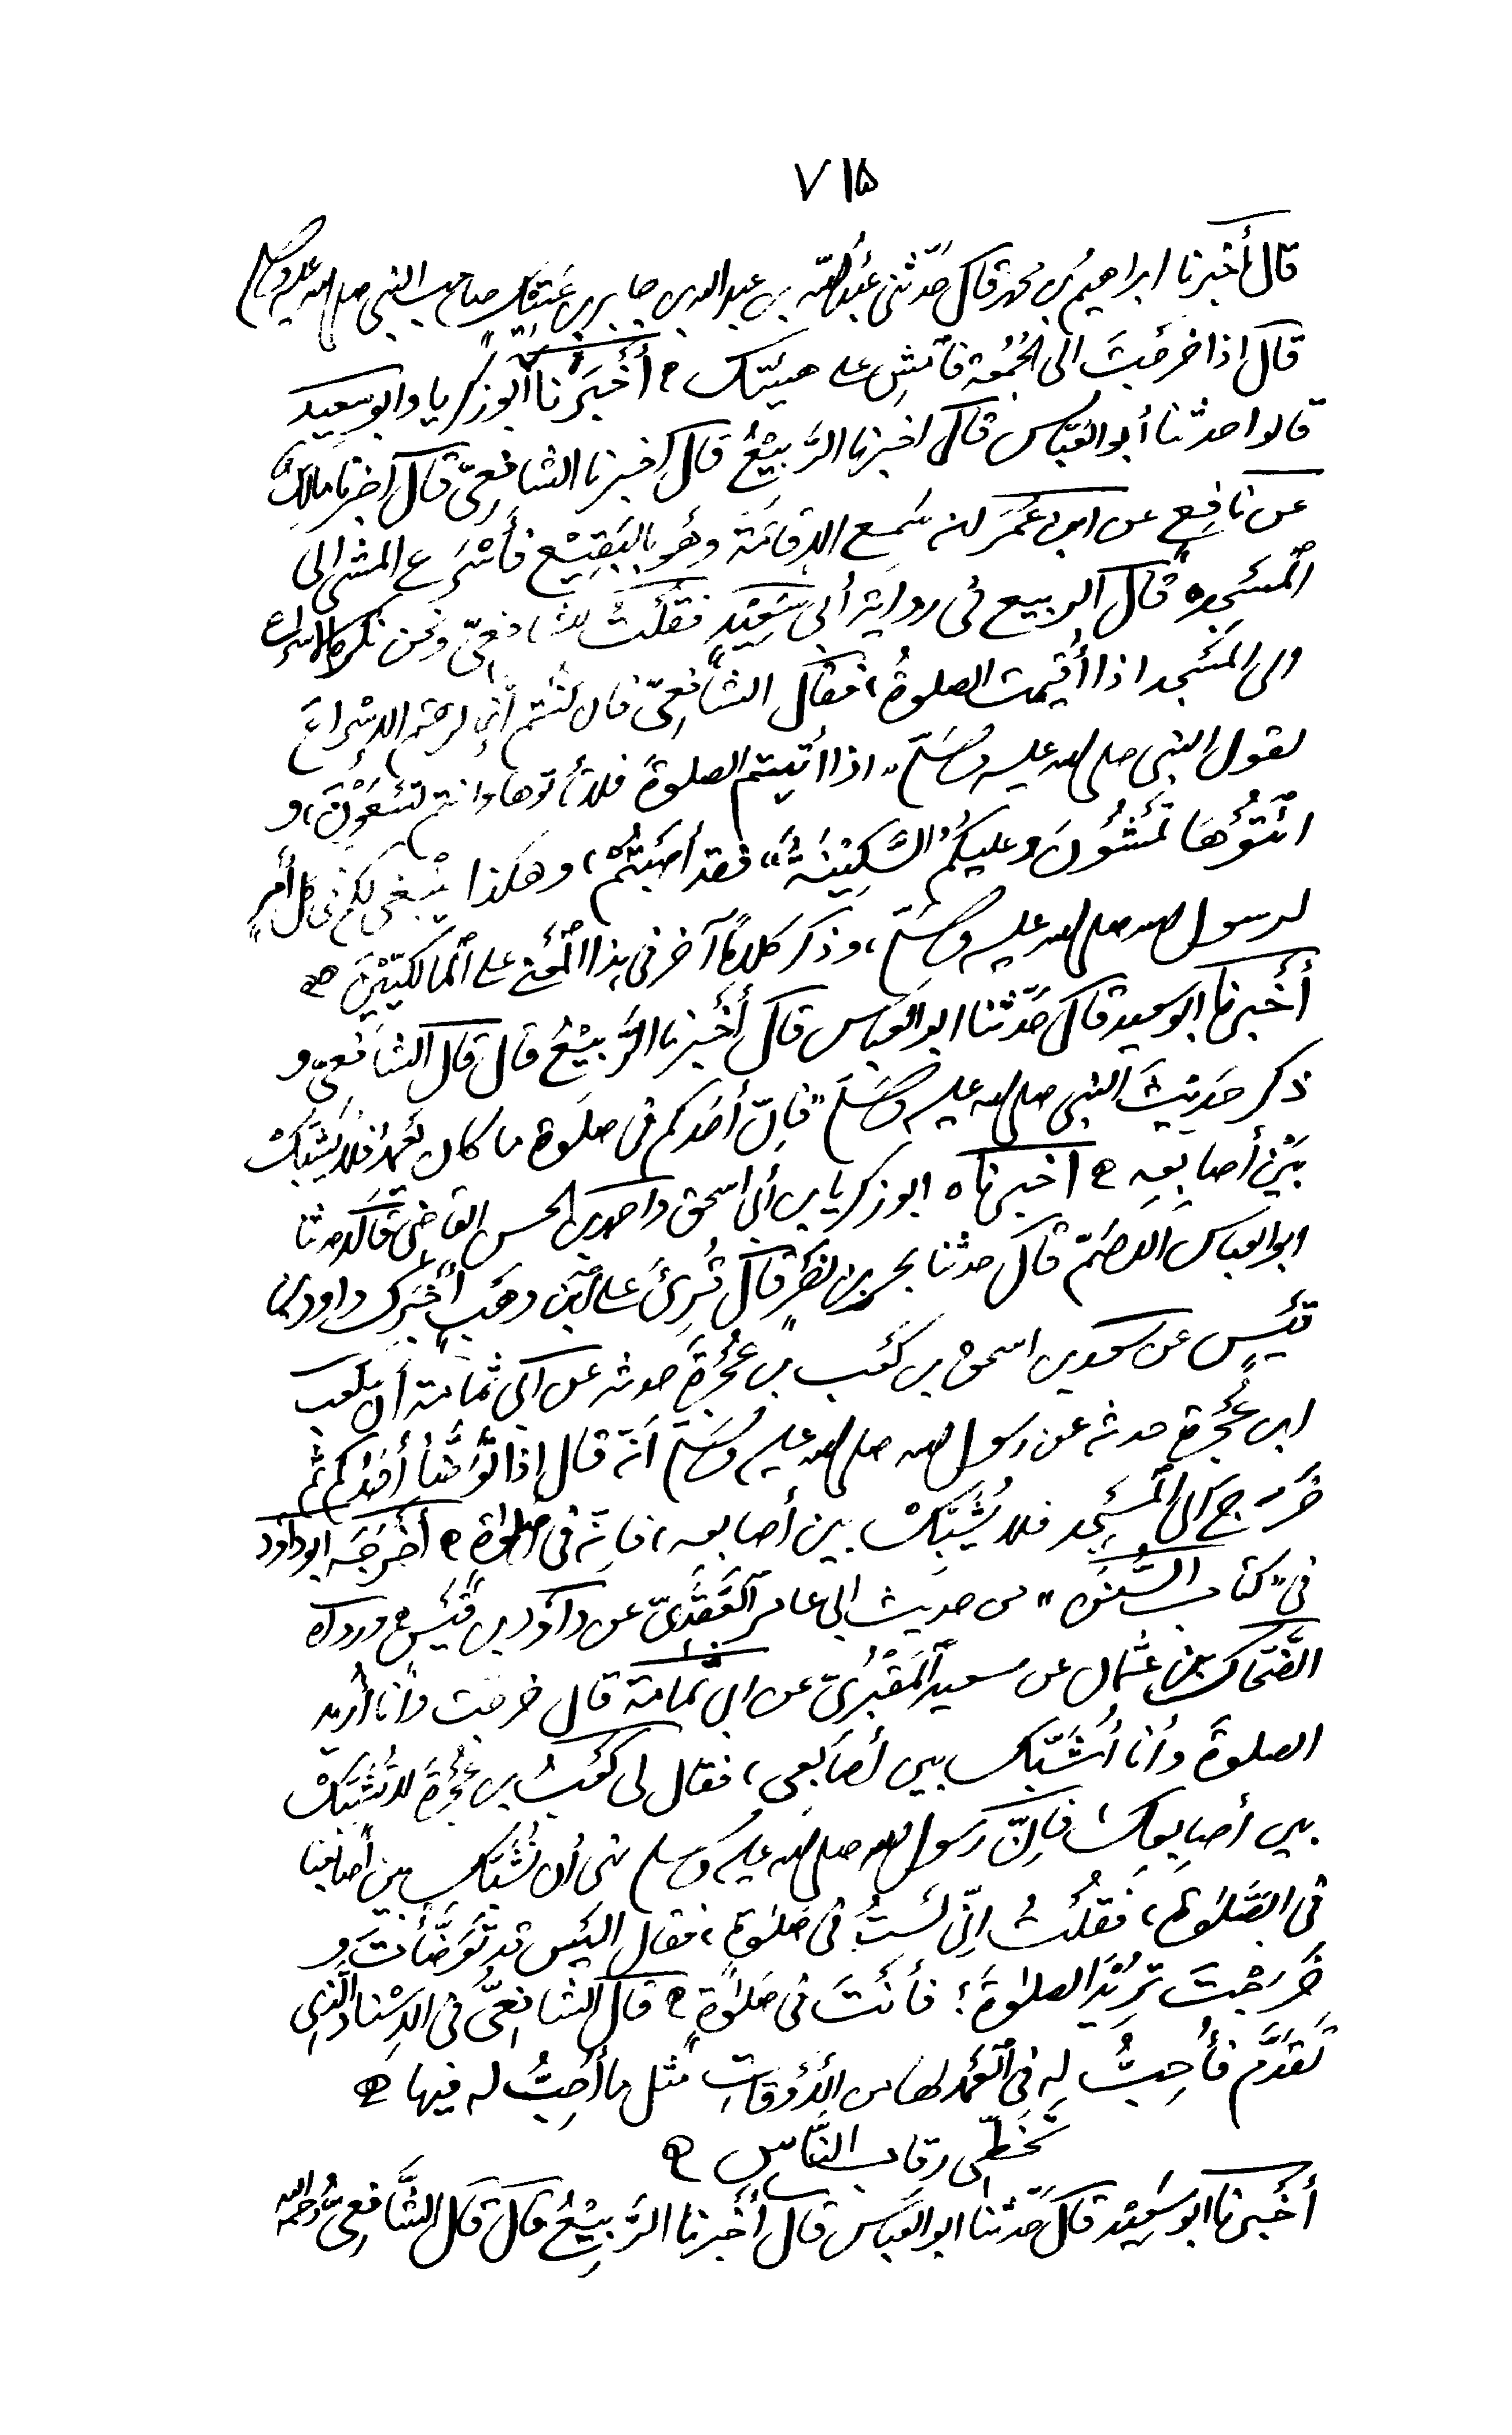 ٧١٥
قال أخبرنا ابراهيم بن محمد قال حدّثنى عبد الله بن عبد الله بن جابر بن عَتِيْك صاحب النبى صلى الله عليه وسلم
قال اذا خرجتَ الى الجُمُعة فامْشِ على هيئتك ه أَخْبَرَنا أبو زكريا وابو سعيد
قالوا حدثنا أبو العبّاس قال اخبرنا الرَّبِيْعُ قال اخبرنا الشافِعىّ قال اخبرنا مالِك
عن نافِعٍ عن ابن عُمَرَ انه سَمِعَ الإقامَةَ وهُو بالبَقِيْع فأَسْرَع المشى الى
المَسْجِد ه قال الربيع فى رواية أبى سَعِيْدٍ فقُلْتُ للشافعىّ ونحن نكره الاسراع
الى المَسْجِد اذا أُقِيْمت الصلوةُ، فقال الشافِعىّ فان كنْتم انما كرهتم الإسْراعَ
لقول النبى صلى الله عليه وسَلّم "اذا أتيتم الصلوةَ فلا تأتوها وانتم تَسْعَوْنَ، و
ائتُوْهَا تَمْشُوْنَ وعليكُمُ السَّكِيْنَةُ" فقد أصَبْتُمْ، وهكذا ينْبغى لكم فى كل أمرٍ
لرسول الله صلى الله عليه وسَلّم، وذكر كلامًا آخر فى هذا المَعْنى على المالكيّيْنَ ه
أَخْبرنا ابو سعيد قال حَدّثنا ابو العباس قال أَخْبَرنا الرَّبِيْعُ قال قال الشافعىّ و
ذكر حَدِيْثَ النبى صلى الله عليه وسَلَّمَ "فإنّ أحَدكم فى صلَوة ما كان يَعْمِدُ فلا يُشَبِّكْ
بَيْنَ أصابِعِه ه اخبرناه ابو زكريا بن أبى اسحق واحمد بن الحسن القاضِى قالا حدثنا
ابو العباس الاصَمّ قال حدثنا بحر بن نَصْرٍ قال قُرِئَ على ابْنِ وهَبٍ أَخْبَرك داود بن
قَيْسٍ عن سعد بن اسحق بن كَعْب بن عُجْرَةَ حدثه عن ابى ثُمامة أن كعب
ابن عُجْرَة حدثه عن رسول الله صلى الله عليه وسَلّم انّه قال اذا تَوَضَّأَ أحَدُكم ثم
خَرَجَ الى المَسْجِد فلا يُشَبِّكْ بين أصابعه، فانّه فى صلوٰة ه أخْرَجَه ابو داؤد
فى "كتاب السُّنَن" من حديث ابى عامر العَقَدِىّ عن داؤد بن قَيْسٍ ه ورواه
الضَّحّاك بن عُثمان عن سعيد المَقْبُرىّ عن ابى ثُمامة قال خرجت وأنا أُريد
الصلوةَ وأنا أُشَبِّك بين أصابِعى، فقال لى كَعْبُ بن عُجْرَةَ لا تُشَبِّكْ
بين أصابِعك، فإنّ رسول الله صلى الله عليه وسلم نهى أن نُشَبِّك بين أصابعنا
فى الصَّلوٰة، فَقُلْتُ إنّى لَسْتُ فى صَلوٰةٍ، فقال اليْس قد تَوَضَّأْتَ و
خَرَجْتَ تريْد الصلوٰةَ؟ فأنْتَ فى صَلوٰةٍ ه قال الشافِعىُّ فى الإسْناد الَّذِى
تَقَدَّم فأُحِبُّ له فى العَمْد لها من الأوْقات مثل ما أُحِبُّ له فيها ه
تَخَطِّى رقاب النَّاسِ ه
أَخْبَرنا ابو سَعِيْد قال حَدّثنا ابو العَبّاس قال أَخْبَرنا الرَّبِيْعُ قال قال الشَّافِعِىُّ رحمه الله